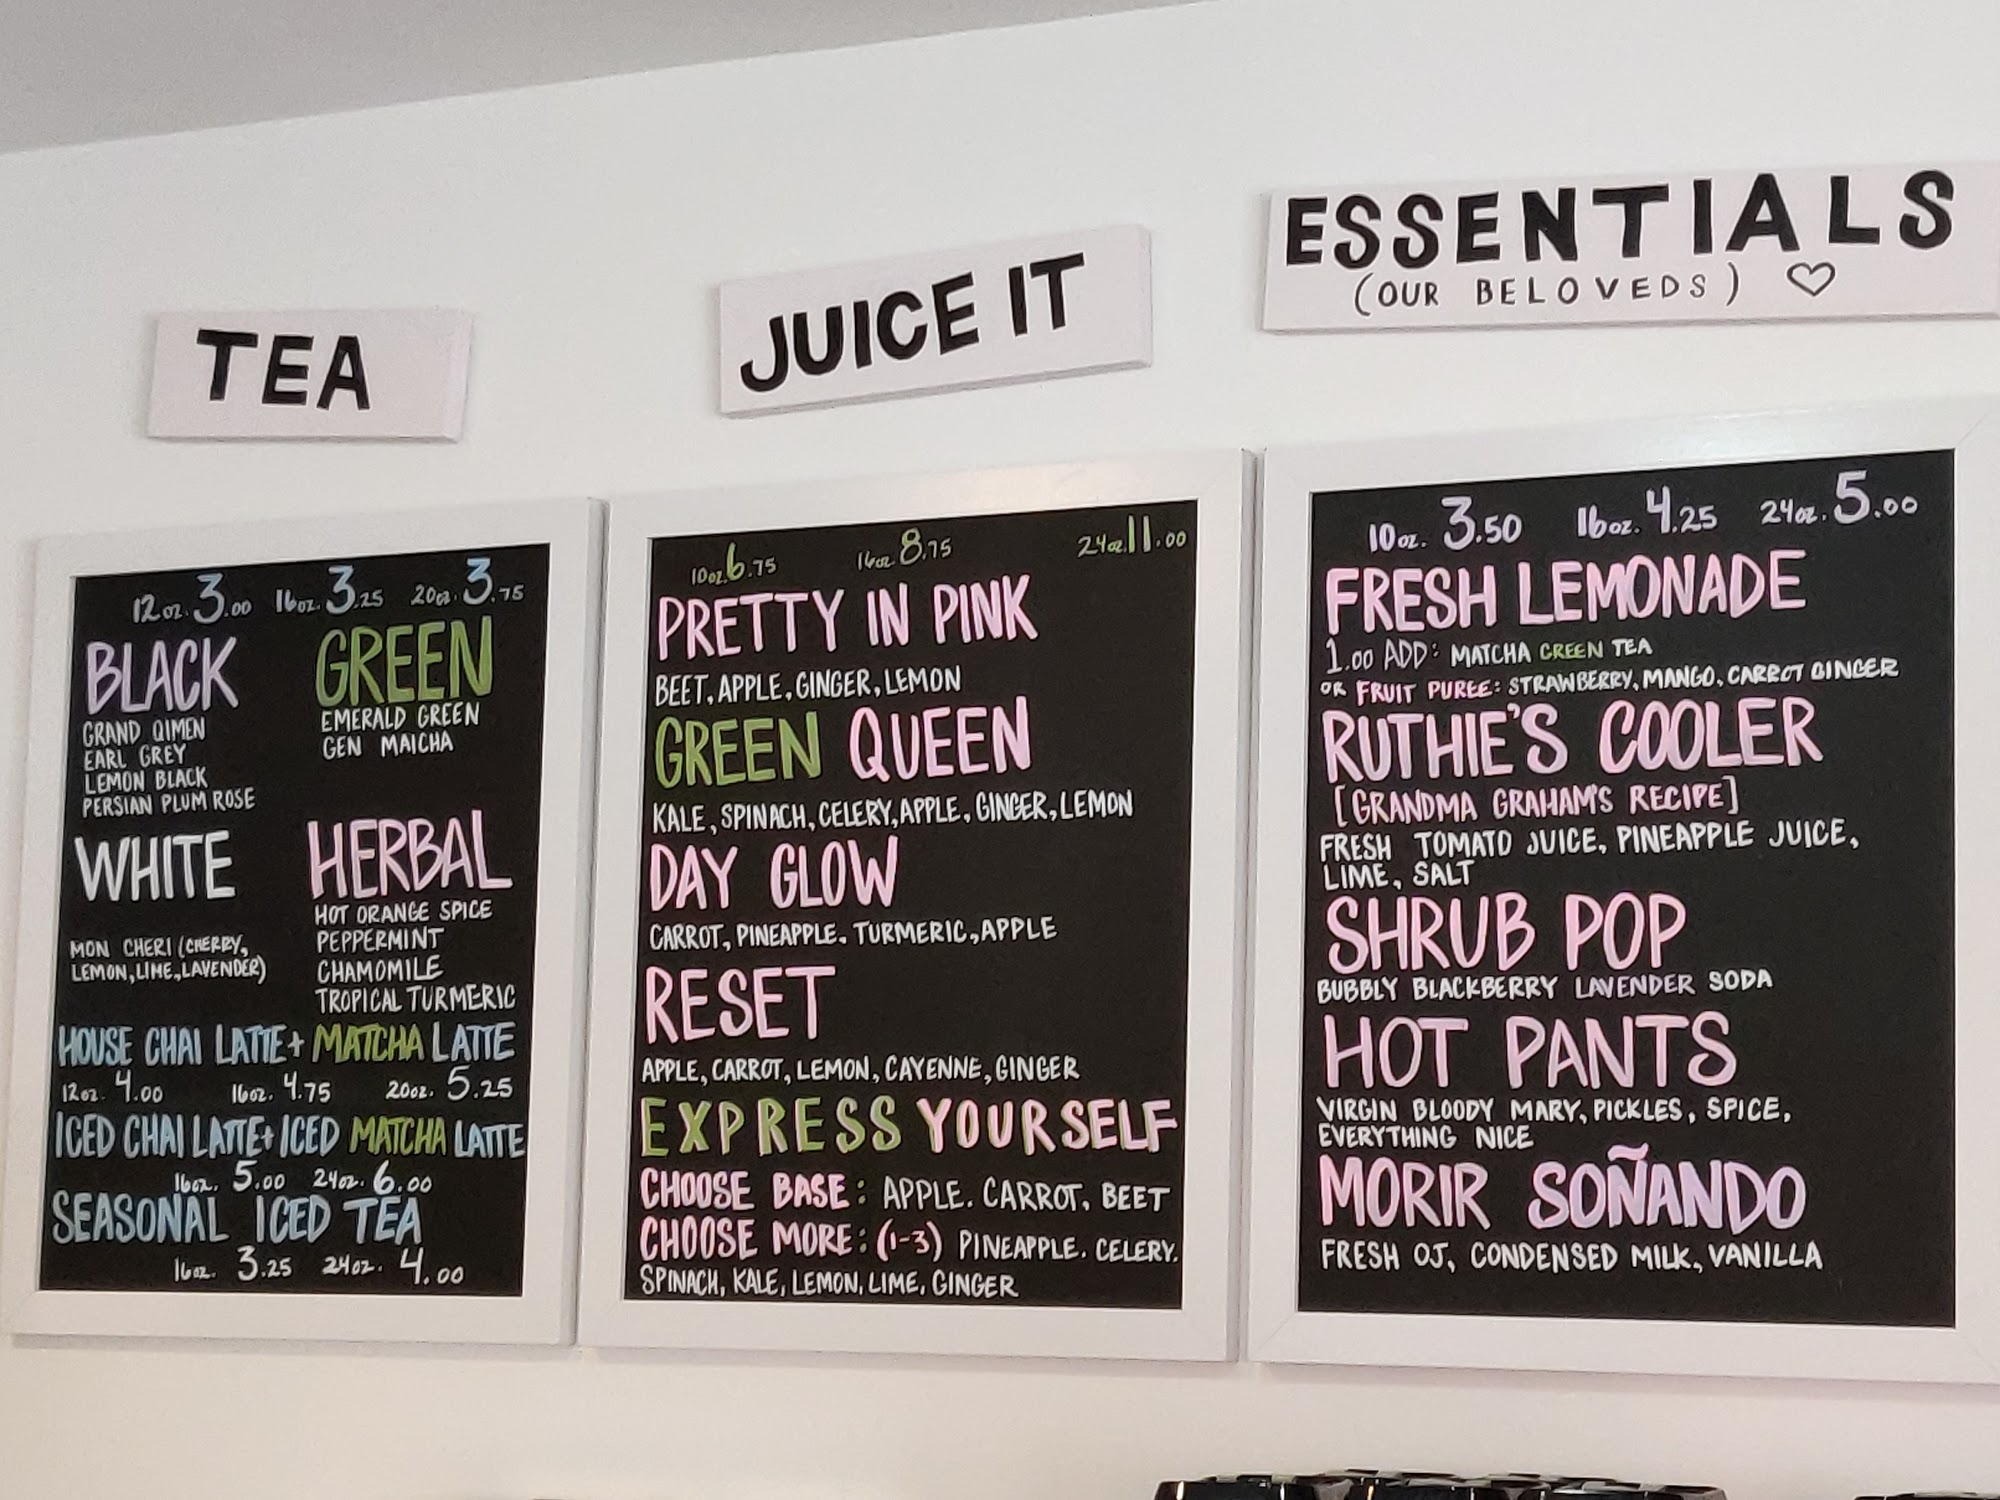 TEA
12oz. 3.00 16oz. 3.25 20oz. 3.75
BLACK
GRAND QIMEN
EARL GREY
LEMON BLACK
PERSIAN PLUM ROSE
GREEN
EMERALD GREEN
GEN MAICHA
WHITE
MON CHERI (CHERRY,
LEMON, LIME, LAVENDER)
HERBAL
HOT ORANGE SPICE
PEPPERMINT
CHAMOMILE
TROPICAL TURMERIC
HOUSE CHAI LATTE + MATCHA LATTE
12oz. 4.00 16oz. 4.75 20oz. 5.25
ICED CHAI LATTE + ICED MATCHA LATTE
16oz. 5.00 24oz. 6.00
SEASONAL ICED TEA
16oz. 3.25 24oz. 4.00
JUICE IT
10oz. 6.75 16oz. 8.75 24oz. 11.00
PRETTY IN PINK
BEET, APPLE, GINGER, LEMON
GREEN QUEEN
KALE, SPINACH, CELERY, APPLE, GINGER, LEMON
DAY GLOW
CARROT, PINEAPPLE. TURMERIC, APPLE
RESET
APPLE, CARROT, LEMON, CAYENNE, GINGER
EXPRESS YOURSELF
CHOOSE BASE: APPLE. CARROT, BEET
CHOOSE MORE: (1-3) PINEAPPLE. CELERY.
SPINACH, KALE, LEMON, LIME, GINGER
ESSENTIALS
(OUR BELOVEDS) ♡
10oz. 3.50 16oz. 4.25 24oz. 5.00
FRESH LEMONADE
1.00 ADD: MATCHA GREEN TEA
OR FRUIT PUREE: STRAWBERRY, MANGO, CARROT GINGER
RUTHIE'S COOLER
[GRANDMA GRAHAM'S RECIPE]
FRESH TOMATO JUICE, PINEAPPLE JUICE,
LIME, SALT
SHRUB POP
BUBBLY BLACKBERRY LAVENDER SODA
HOT PANTS
VIRGIN BLOODY MARY, PICKLES, SPICE,
EVERYTHING NICE
MORIR SOÑANDO
FRESH OJ, CONDENSED MILK, VANILLA